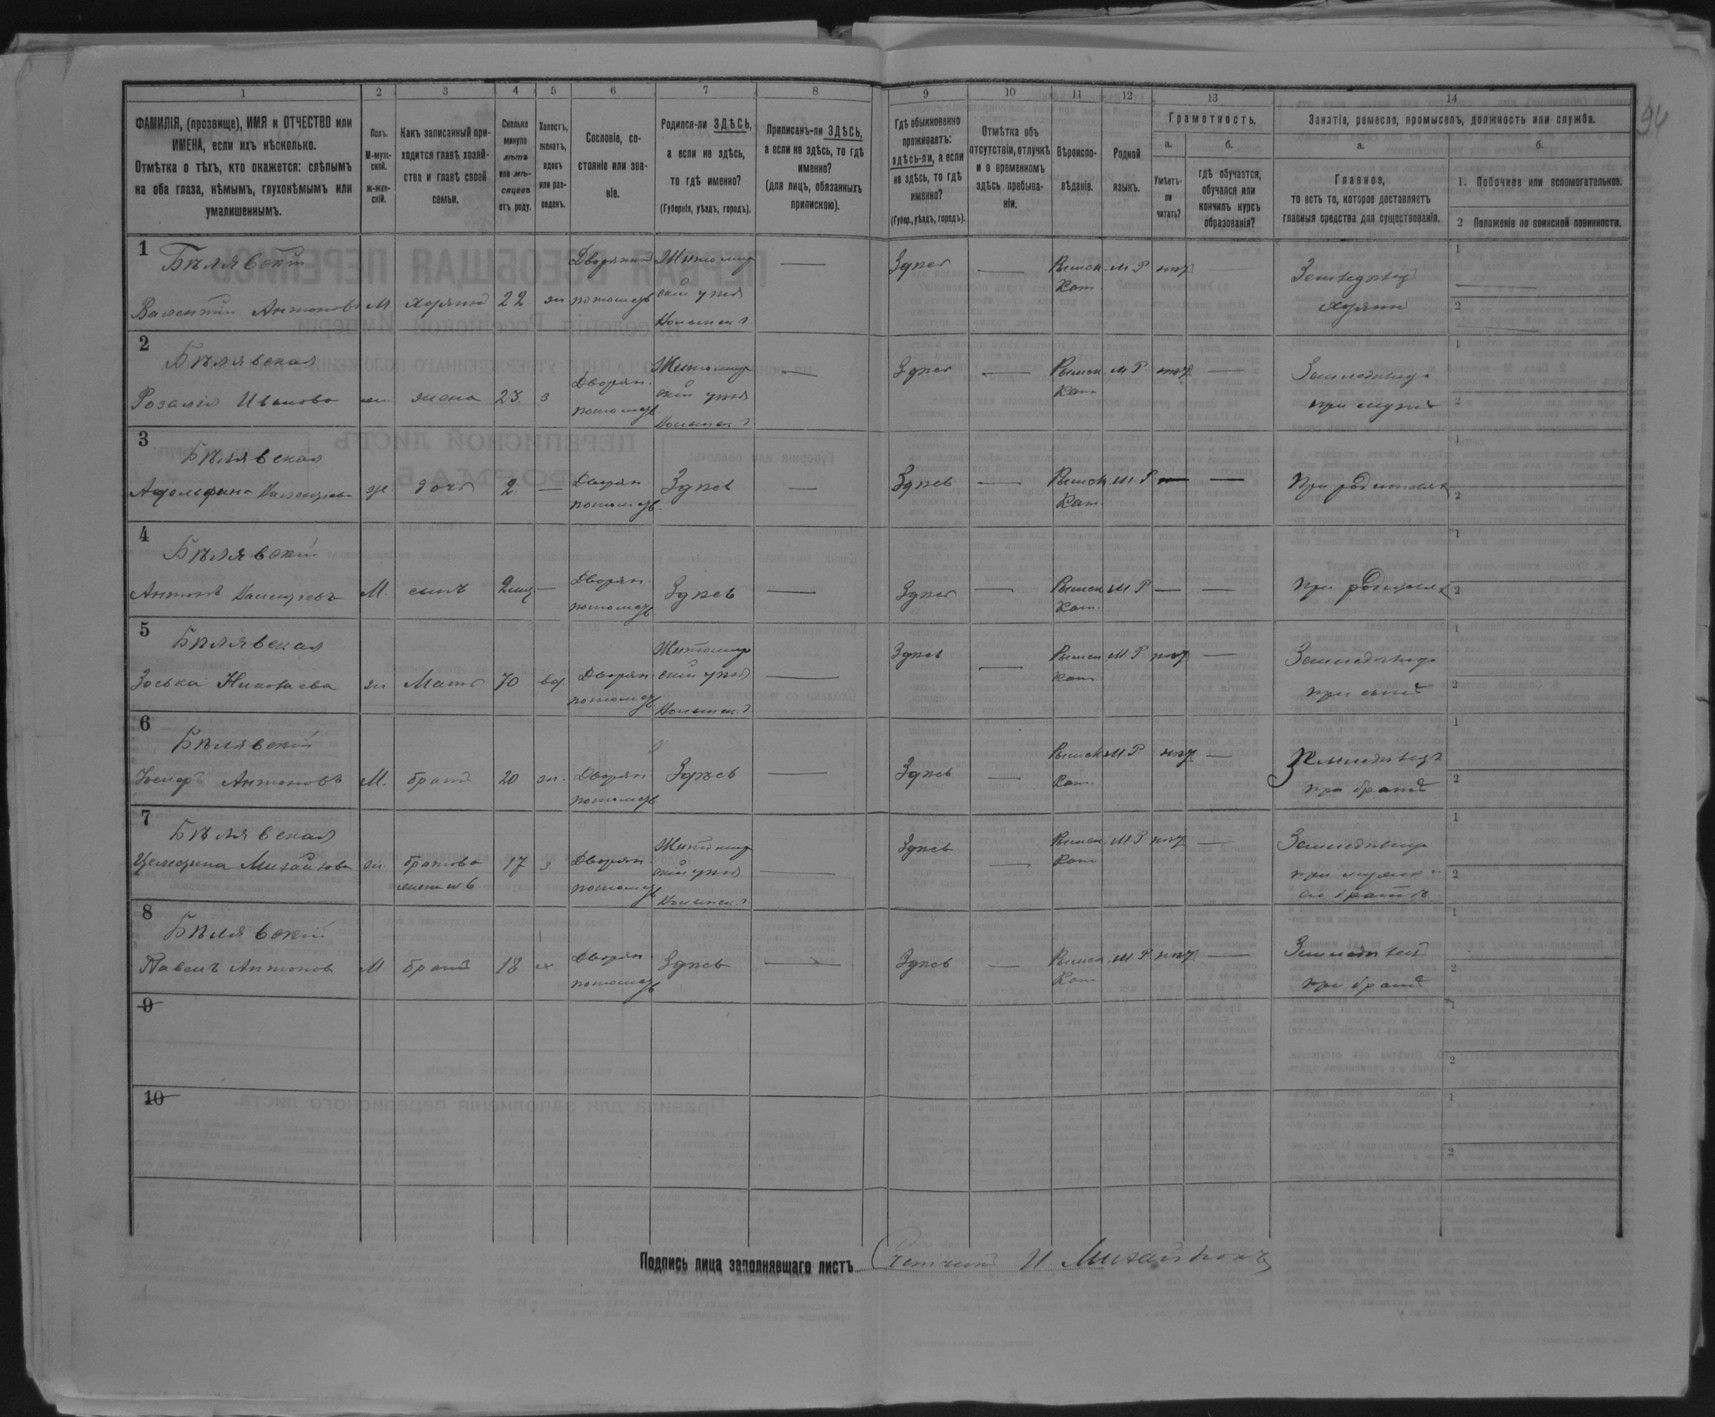 94
1 2 3 4 5 6 7 8 9 10 11 12 13 14
ФАМИЛІЯ, (прозвище), ИМЯ и ОТЧЕСТВО или
ИМЕНА, если ихъ нѣсколько.
Отмѣтка о тѣхъ, кто окажется: слѣпымъ
на оба глаза, нѣмымъ, глухонѣмымъ или
умалишеннымъ.
Полъ.
М-муж-
ской.
Ж-жен-
скій.
Какъ записанный при-
ходится главѣ хозяй-
ства и главѣ своей
семьи.
Сколько
минуло
лѣтъ
или мѣ-
сяцевъ
отъ роду.
Холостъ,
женатъ,
вдовъ
или раз-
веденъ.
Сословіе, со-
стояніе или зва-
ніе.
Родился-ли ЗДѢСЬ,
а если не здѣсь,
то гдѣ именно?
(Губернія, уѣздъ, городъ).
Приписанъ-ли ЗДѢСЬ,
а если не здѣсь, то гдѣ
именно?
(для лицъ, обязанныхъ
припискою).
Гдѣ обыкновенно
проживаетъ:
здѣсь-ли, а если
не здѣсь, то гдѣ
именно?
(Губер., уѣздъ, городъ).
Отмѣтка объ
отсутствіи, отлучкѣ
и о временномъ
здѣсь пребыва-
ніи.
Вѣроиспо-
вѣданіе.
Родной
языкъ.
Грамотность.
а.
Умѣетъ-
ли
читать?
б.
гдѣ обучается,
обучался или
кончилъ курсъ
образованія?
Занятія, ремесло, промыселъ, должность или служба.
а.
Главное,
то есть то, которое доставляетъ
главныя средства для существованія.
б.
1. Побочное или вспомогательное.
2 Положеніе по воинской повинности.
1
Бѣлявскій
Валентій Антоновъ М хозяинъ 22 жн
Дворянинъ потомств
Житомир скій уѣзд Волынск. г
— Здѣсь — Римск. Кат М Р нѣт —
Земледѣлец хозяин
1
2
2
Бѣлявская
Розалія Иванова жен. жена 23. з
Дворян. потомств
Житомир скій уѣзд Волынск. г
— Здѣсь — Римск. Кат М Р нѣт —
Земледѣлица при мужѣ
1
2
3
Бѣлявская
Адельфина Валентіева ж дочь 2 —
Дворян потомств
Здѣсь — Здѣсь — Римск. Кат. М Р — —
При родителях
1
2
4
Бѣлявскій
Антонъ Валентіевъ М. сынъ 2 мѣс —
Дворян. потомств
Здѣсь — Здѣсь — Римск. Кат. М Р — —
при родителях
1
2
5
Бѣлявская
Зоська Николаева жн Мать 70 вд.
Дворян потомств
Житомир скій уѣзд Волынск. г
— Здѣсь — Римск Кат М Р нѣт —
Земледѣлица при сынѣ
1
2
6
Бѣлявскій
Антоновъ М. братъ 20 жн.
Дворян потомств
Здѣсь — Здѣсь — Римск Кат. М Р нѣт —
Земледѣлец при братѣ
1
2
7
Бѣлявская
Михайлова жн братова 17 з
Дворян потомств
Житомир скій уѣзд Волынск. г
— Здѣсь — Римск. Кат М Р нѣт —
Земледѣлица при мужѣ и
1
2
8
Бѣлявскій
Павелъ Антонов М братъ 18 х
Дворян потомств
Здѣсь — Здѣсь — Римск. Кат М Р нѣт —
Земледѣлец при братѣ
1
2
9
1
2
10
1
2
Подпись лица заполнявшаго листъ Счетчикъ И Михай